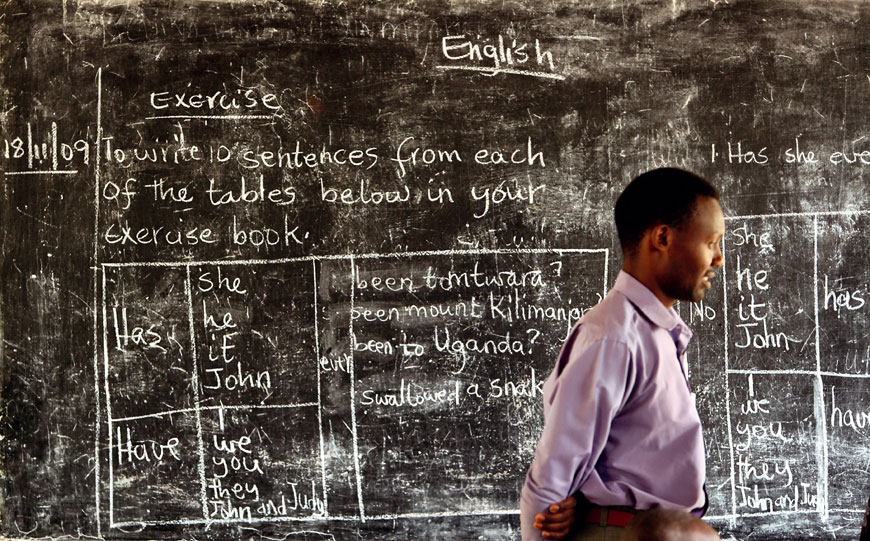 English
Exercise
18/11/09
To write 10 sentences from each
of the tables below in your
exercise book.
Has
she
he
it
John
ever
been to mtwara?
seen mount Kilimanjaro
been to Uganda?
swallowed a snak
Have
I
we
you
they
John and Judy
1 Has she eve
NO
she
he
it
John
has
I
we
you
they
John and Judy
have